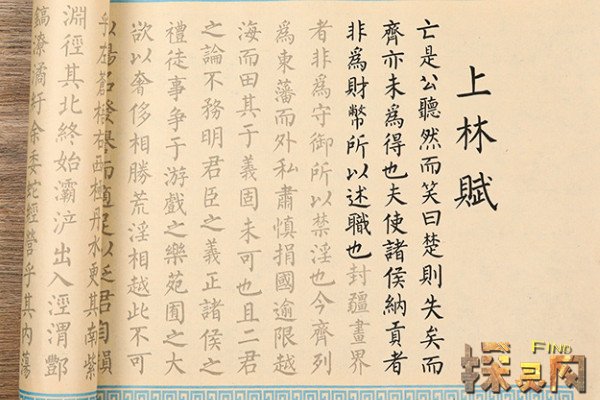 上林賦
亡是公聽然而笑曰楚則失矣而
齊亦未爲得也夫使諸侯納貢者
非爲財幣所以述職也封疆畫界
者非爲守御所以禁淫也今齊列
爲東藩而外私肅慎捐國逾限越
海而田其于義固未可也且二君
之論不務明君臣之義正諸侯之
禮徒事爭于游戲之樂苑囿之大
欲以奢侈相勝荒淫相越此不可
以揚名發而適足以君自損
乎西極丹水更其南紫
淵徑其北終始灞滻出入涇渭酆
鎬潦潏紆余委蛇經營乎其內蕩
FIND
探灵网